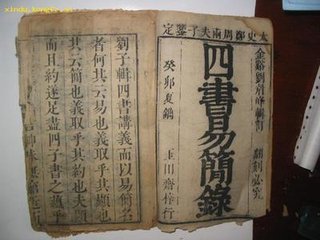 太史鄒周兩夫子鑒定
金谿劉峰輯著 翻刻必究
四書易簡錄
癸卯夏鐫 玉田齋梓行
劉子輯四書講義而以易簡名
者何其云易也義取乎其顯也
其云簡也義取乎其約也夫顯
而且約遂足盡四子書之蘊乎